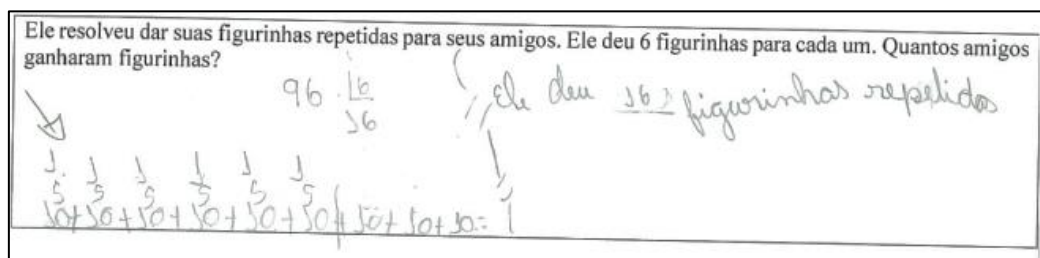 Ele resolveu dar suas figurinhas repetidas para seus amigos. Ele deu 6 figurinhas para cada um. Quantos amigos
ganharam figurinhas?
96 6
16
Ele deu 16 figurinhas repetidas
1 1 1 1 1 1
5 5 5 5 5 5
10+10+10+10+10+10+10+10+10=